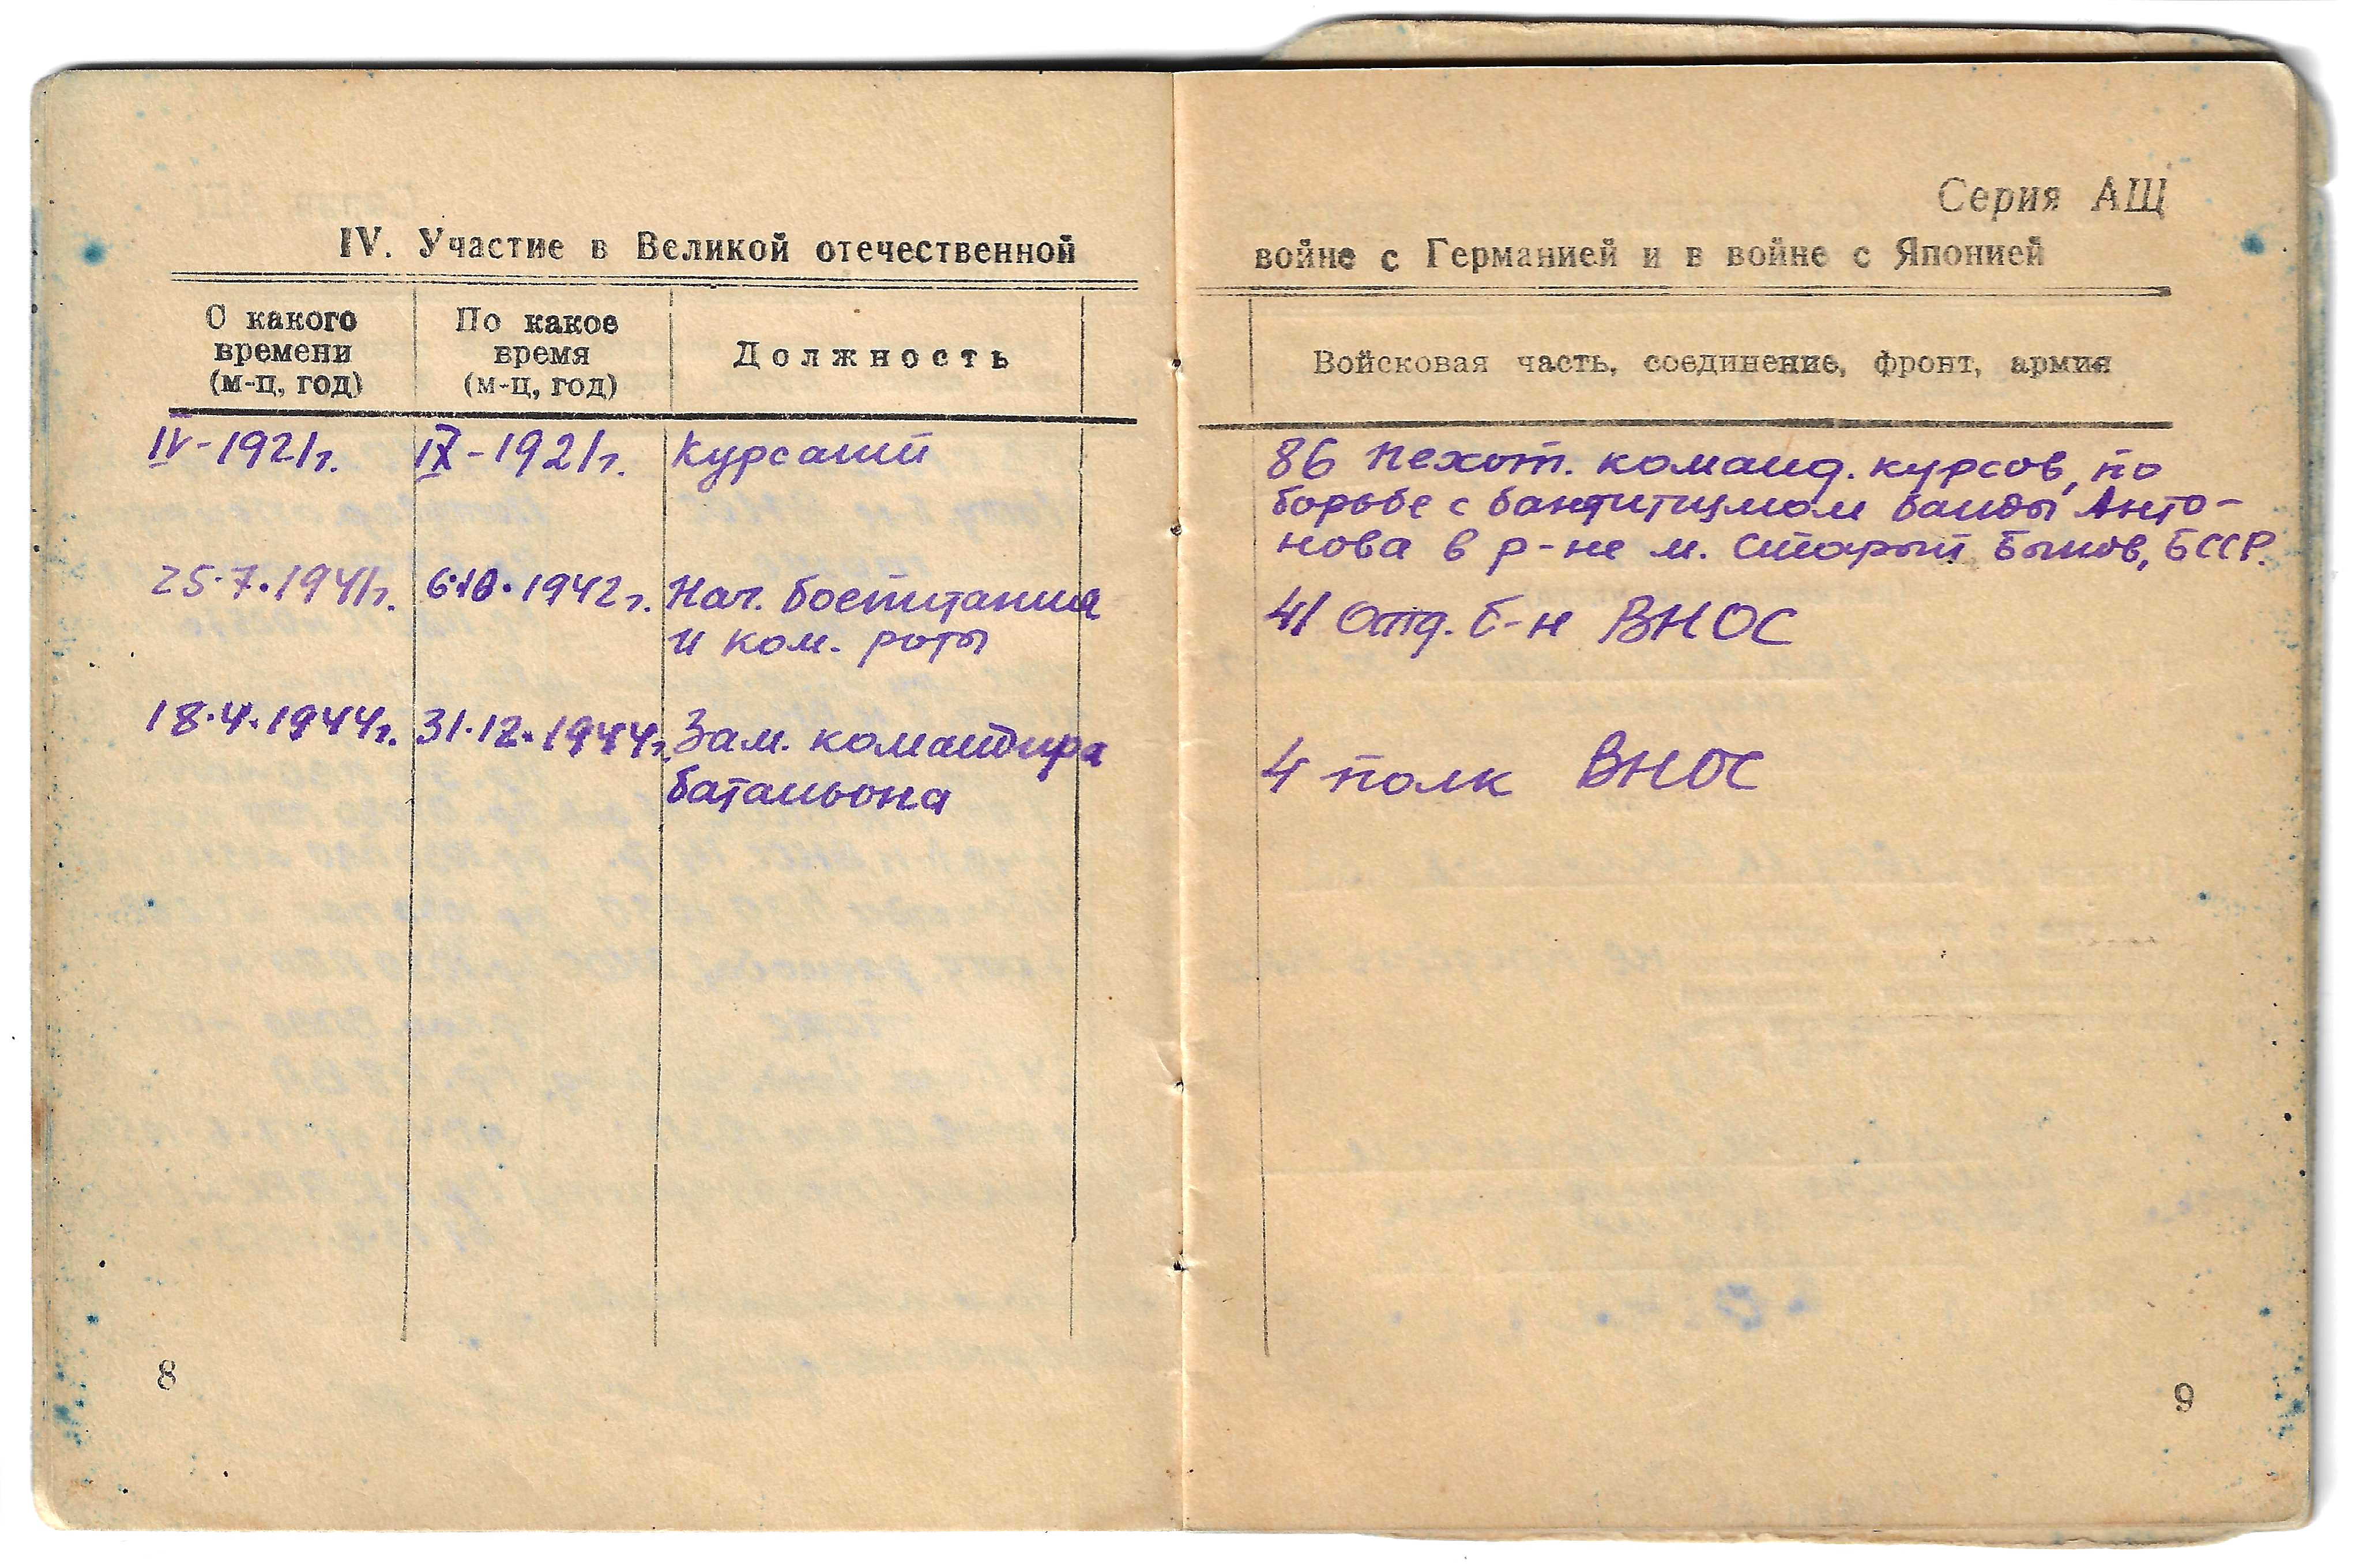 IV. Участие в Великой отечественной
С какого
времени
(м-ц, год)
По какое
время
(м-ц, год)
Должность
IV-1921г.
IX-1921г.
Курсант
25.7.1941г.
6.10.1942г.
Нач. боепитания
и ком. роты
18.4.1944г.
31.12.1944г.
Зам. командира
батальона
8
Серия АЩ
войне с Германией и в войне с Японией
Войсковая часть, соединение, фронт, армия
86 пехот. команд. курсов, по
борьбе с бандитизмом банды Анто-
нова в р-не м. Старый Быхов, БССР.
41 Отд. б-н ВНОС
4 полк ВНОС
9